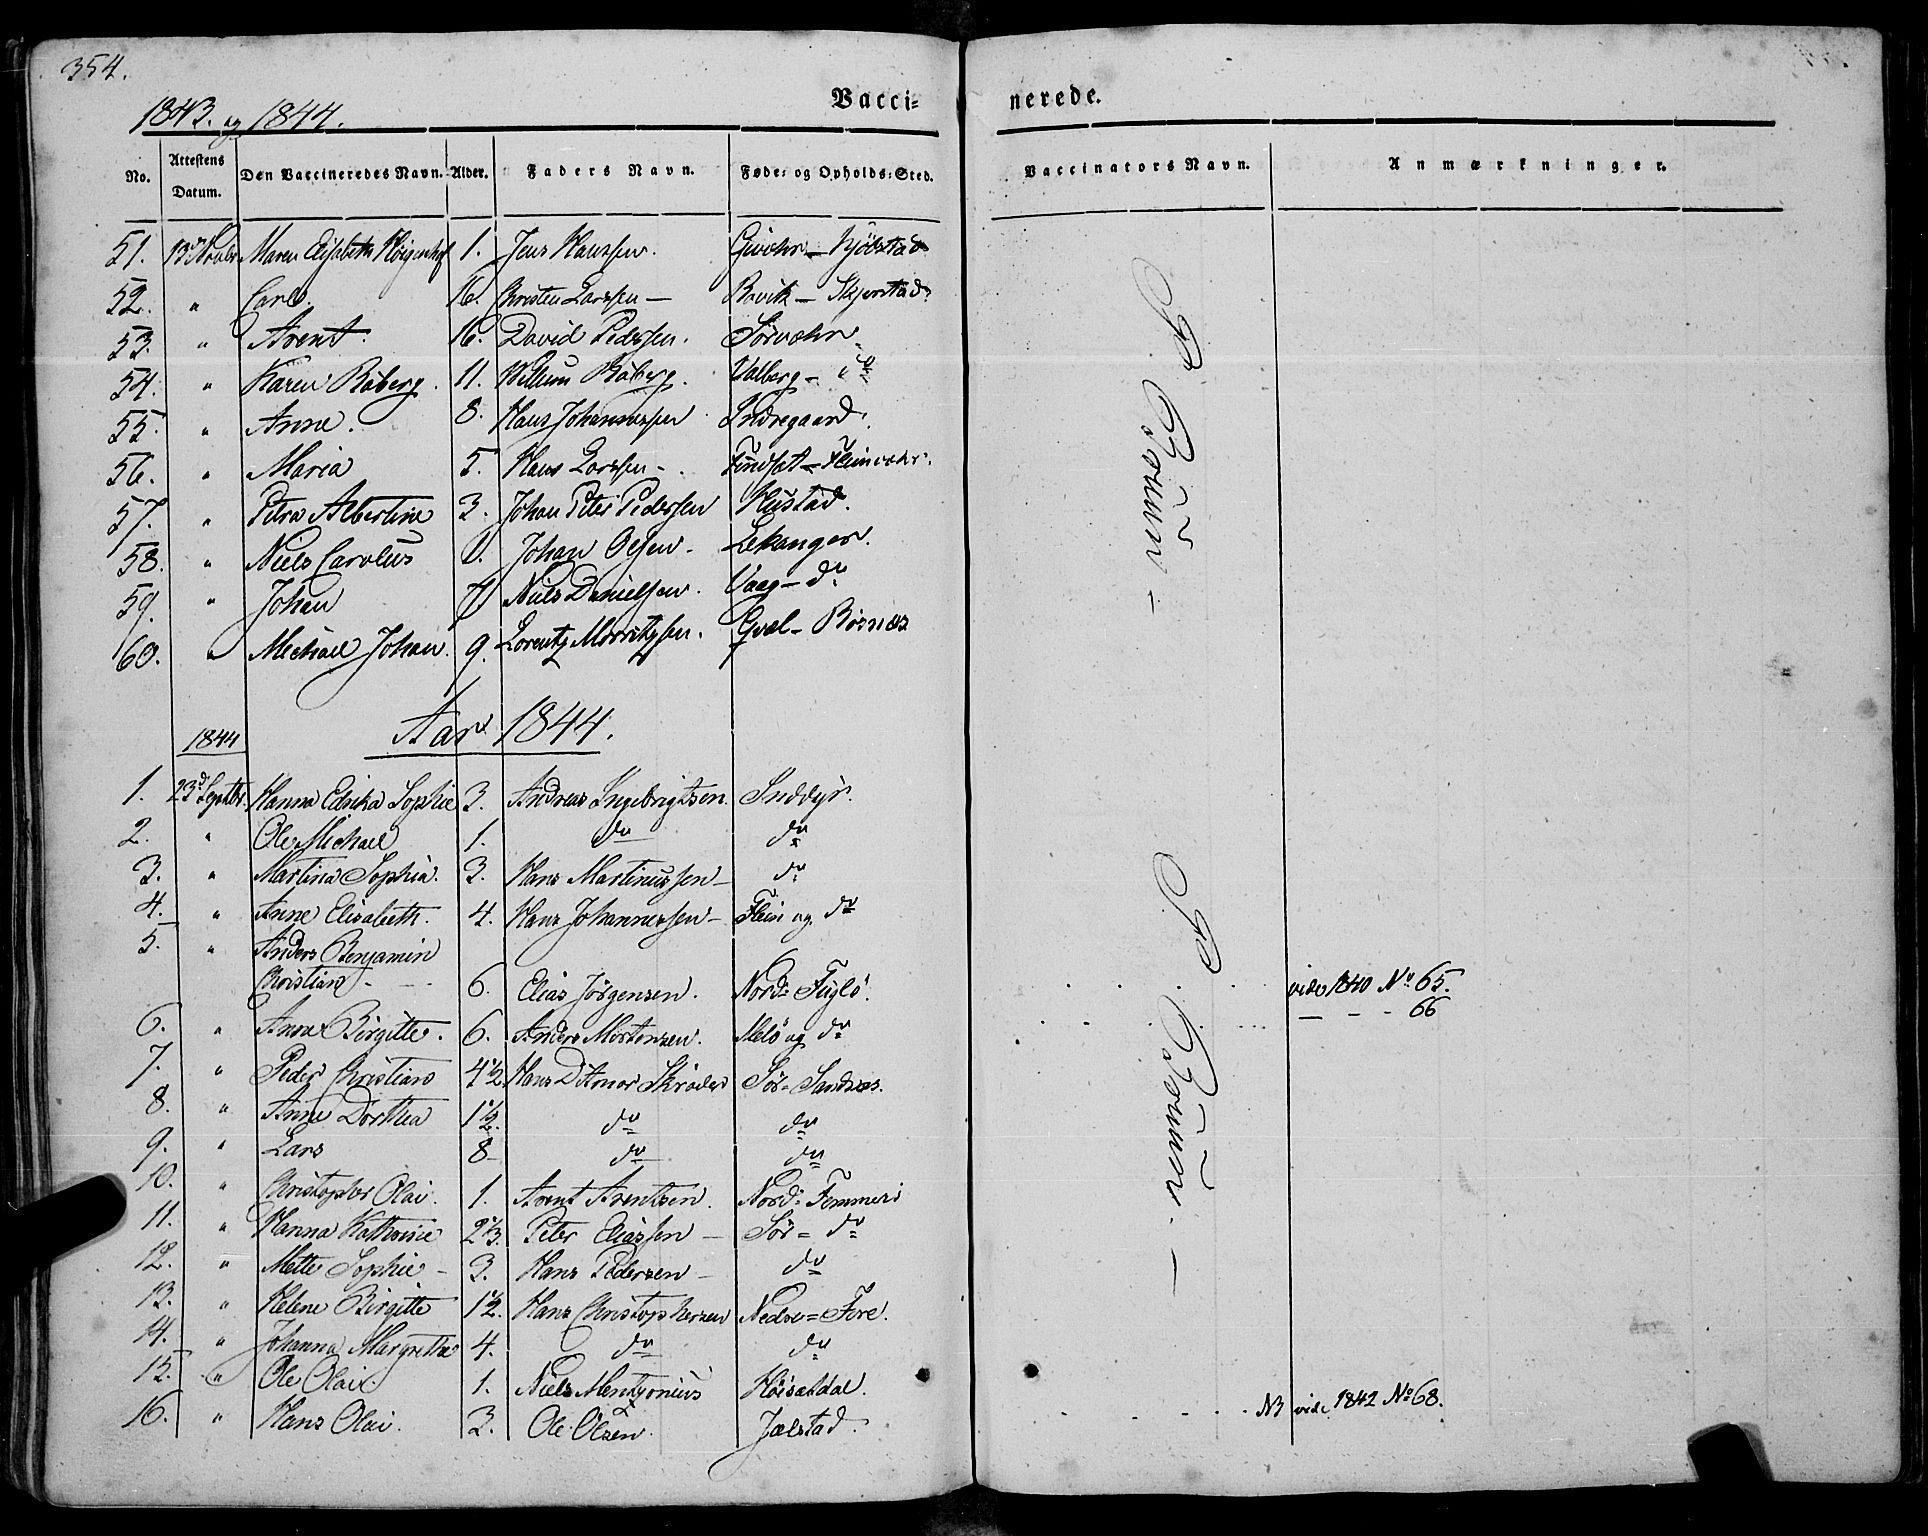 354.
1843. og 1844.
Vacci= nerede.
No. Attestens Datum. Den Vaccineredes Navn. Alder. Faders Navn. Føde= og Opholds=Sted. Vaccinators Navn. Anmærkninger.
51. 13d Novbr Maren Elisabeth 1. Jens Hanssen. Givær - Kjölstad
52. " Carl. 16. Christen Larssen - Bovik - Skjerstad.
53. " Arent. 16. David Pedersen. Sörvær
54. " Karen Röberg. 11. Willum Röberg. Valberg - "
55. " Anne. 8. Hans Johannessen Indregaard.
56. " Maria 5. Hans Larssen - Findset - Fleinvær.
57. " Petra Albertine 3. Johan Peter Pederssen Hustad.
58. " Niels Carolus Johan Olsen - Lekanger.
59. " Johan Niels Danielsen. Vaag - do
60. " Michael Johan. 9. Lorentz Morritzsen. Gvæl - Bösnæs
P. Björnsen -
1844 Aar 1844.
1. 23d Septbr. Hanna Edrika Sophie 3. Andreas Ingebrigtsen. Inddyr.
2. " Ole Michael 1. do do
3. " Martina Sophia. 3. Hans Martinussen - do
4. " Anne Elisabeth. 4. Hans Johannessen - Flein og do
5. " Anders Benjamin
Christian - 6. Elias Jörgensen. Nord= Fuglö. vide 1840 No 65.
6. " Anne Birgitte. 6. Anders Mortensen. Melö og do - - - 66
7. " Peder Christian 4 1/2 Hans Ditmar Skröder Sör= Sandnæs.
8. " Anne Dorthea 1 1/2. do do
9. " Lars 8 do do
10. " Christopher Olai. 1. Arent Arentsen. Nord= Femmeris
11. " Hanna Kathrine 2 1/3. Peter Eliassen - Sör= do
12. " Mette Sophie - 3. Hans Pedersen - do
13. " Helene Birgitte 1 1/2. Hans Christophersen Nedre= Fore.
14. " Johanna Margretha 4. do do
15. " Ole Olai. 1. Niels Mentzonius Höisetdal.
16. " Hans Olai. 3. Ole Olsen. Jælstad. NB vide 1842 No 68.
P. Björnsen. -